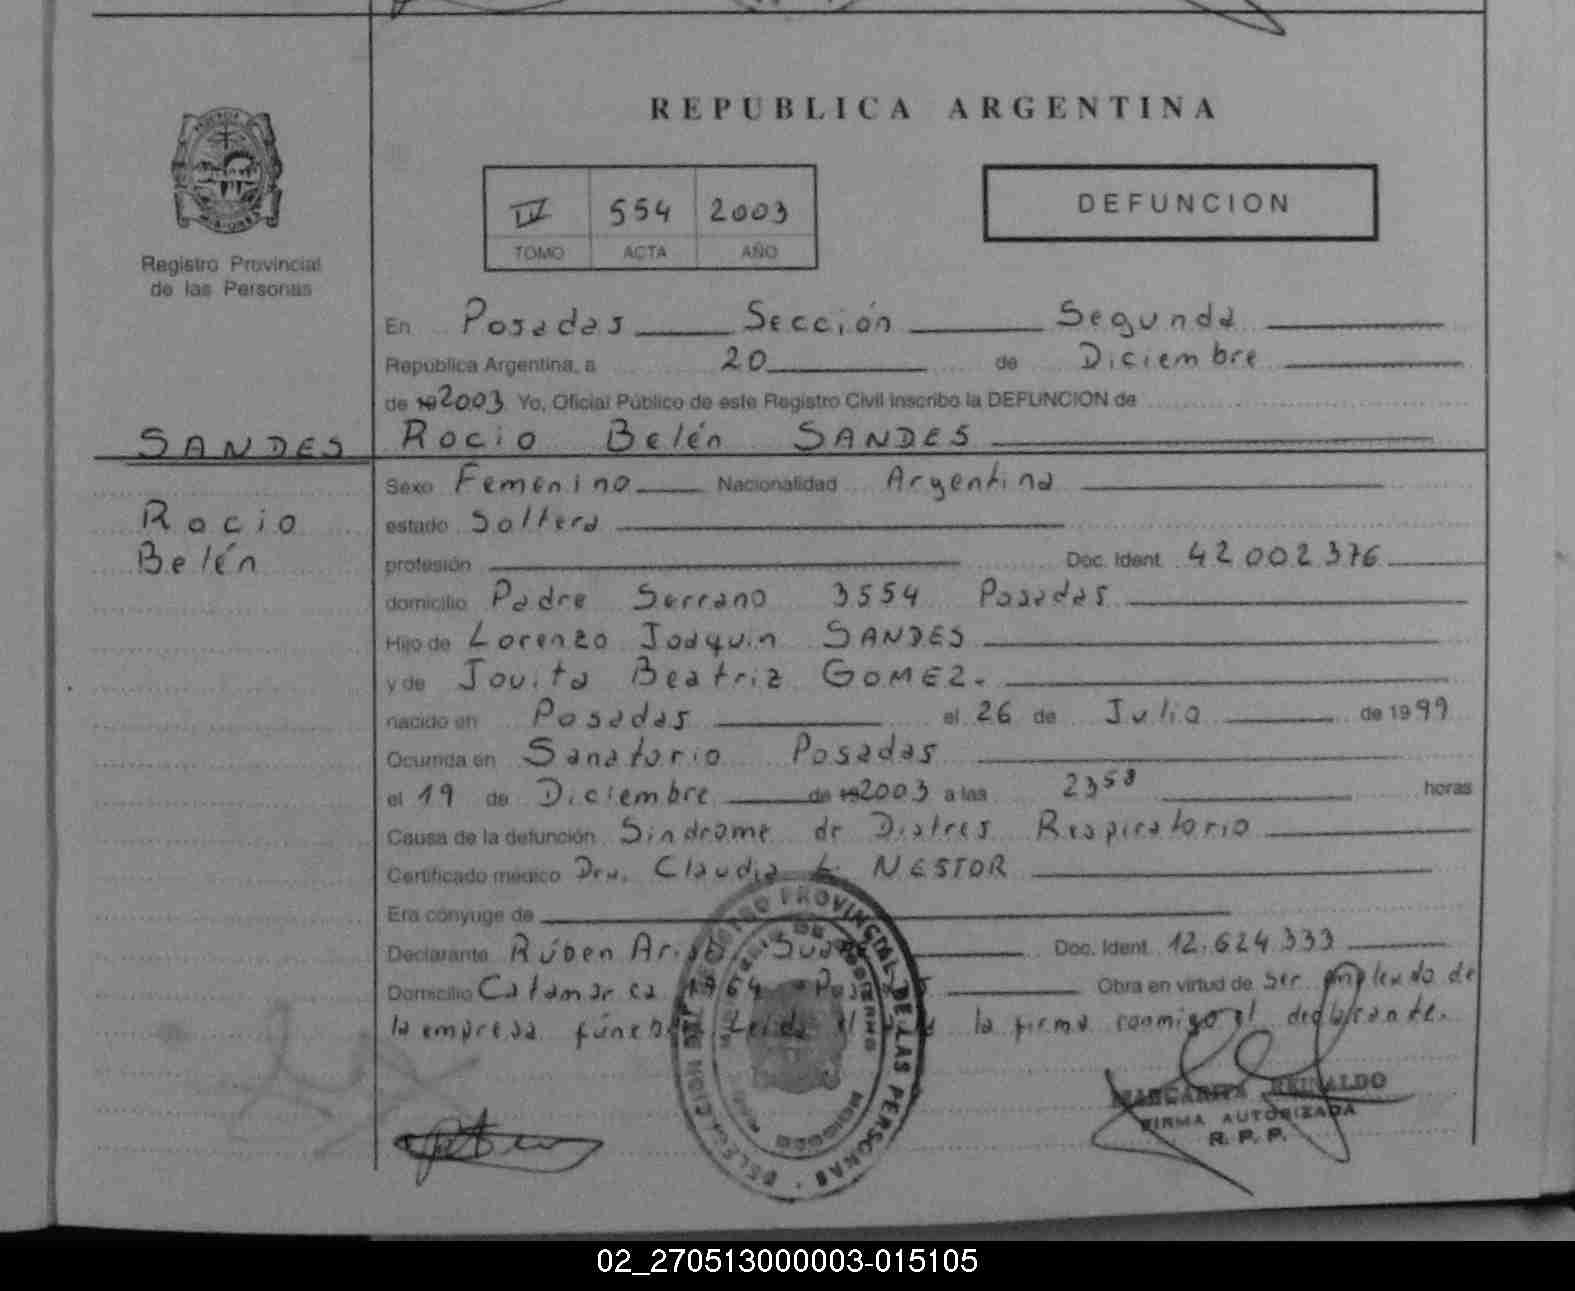 REPUBLICA ARGENTINA
554 2003
TOMO ACTA AÑO
DEFUNCION
Registro Provincial
de las Personas
En Posadas Sección Segunda
República Argentina, a 20 de Diciembre
de 19 2003 Yo, Oficial Público de este Registro Civil inscribo la DEFUNCION de
SANDES
Rocio Belén SANDES
Rocio
Belén
Sexo Femenino Nacionalidad Argentina
estado Soltera
profesión Doc. Ident. 42 002 376
domicilio Padre Serrano 3554 Posadas
Hijo de Lorenzo Joaquin SANDES
y de Jovita Beatriz GOMEZ.
nacido en Posadas el 26 de Julio de 1999
Ocurrida en Sanatorio Posadas
el 19 de Diciembre de 19 2003 a las 2358 horas
Causa de la defunción Sindrome de Distres Respiratorio
Certificado médico Dra. Claudia NESTOR
Era cónyuge de
Declarante Rúben Doc. Ident. 12.624.333
Domicilio Catamarca Obra en virtud de ser empleado de
la empresa la firma conmigo el declarante.
PROVINCIAL DE LAS PERSONAS
MARGARITA REINALDO
FIRMA AUTORIZADA
R. P. P.
02_270513000003-015105